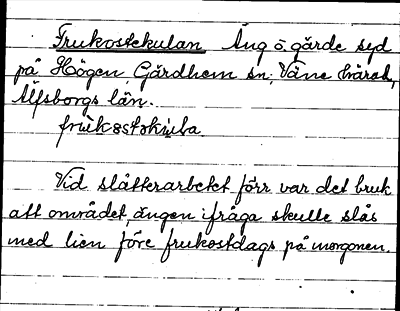 Frukostekulan Äng o. gärde syd
på Högen, Gärdhem sn, Väne härad,
Älfsborgs län.
Vid slåtterarbetet förr var det bruk
att området, ängen ifråga skulle slås
med lien före frukostdags på morgonen.